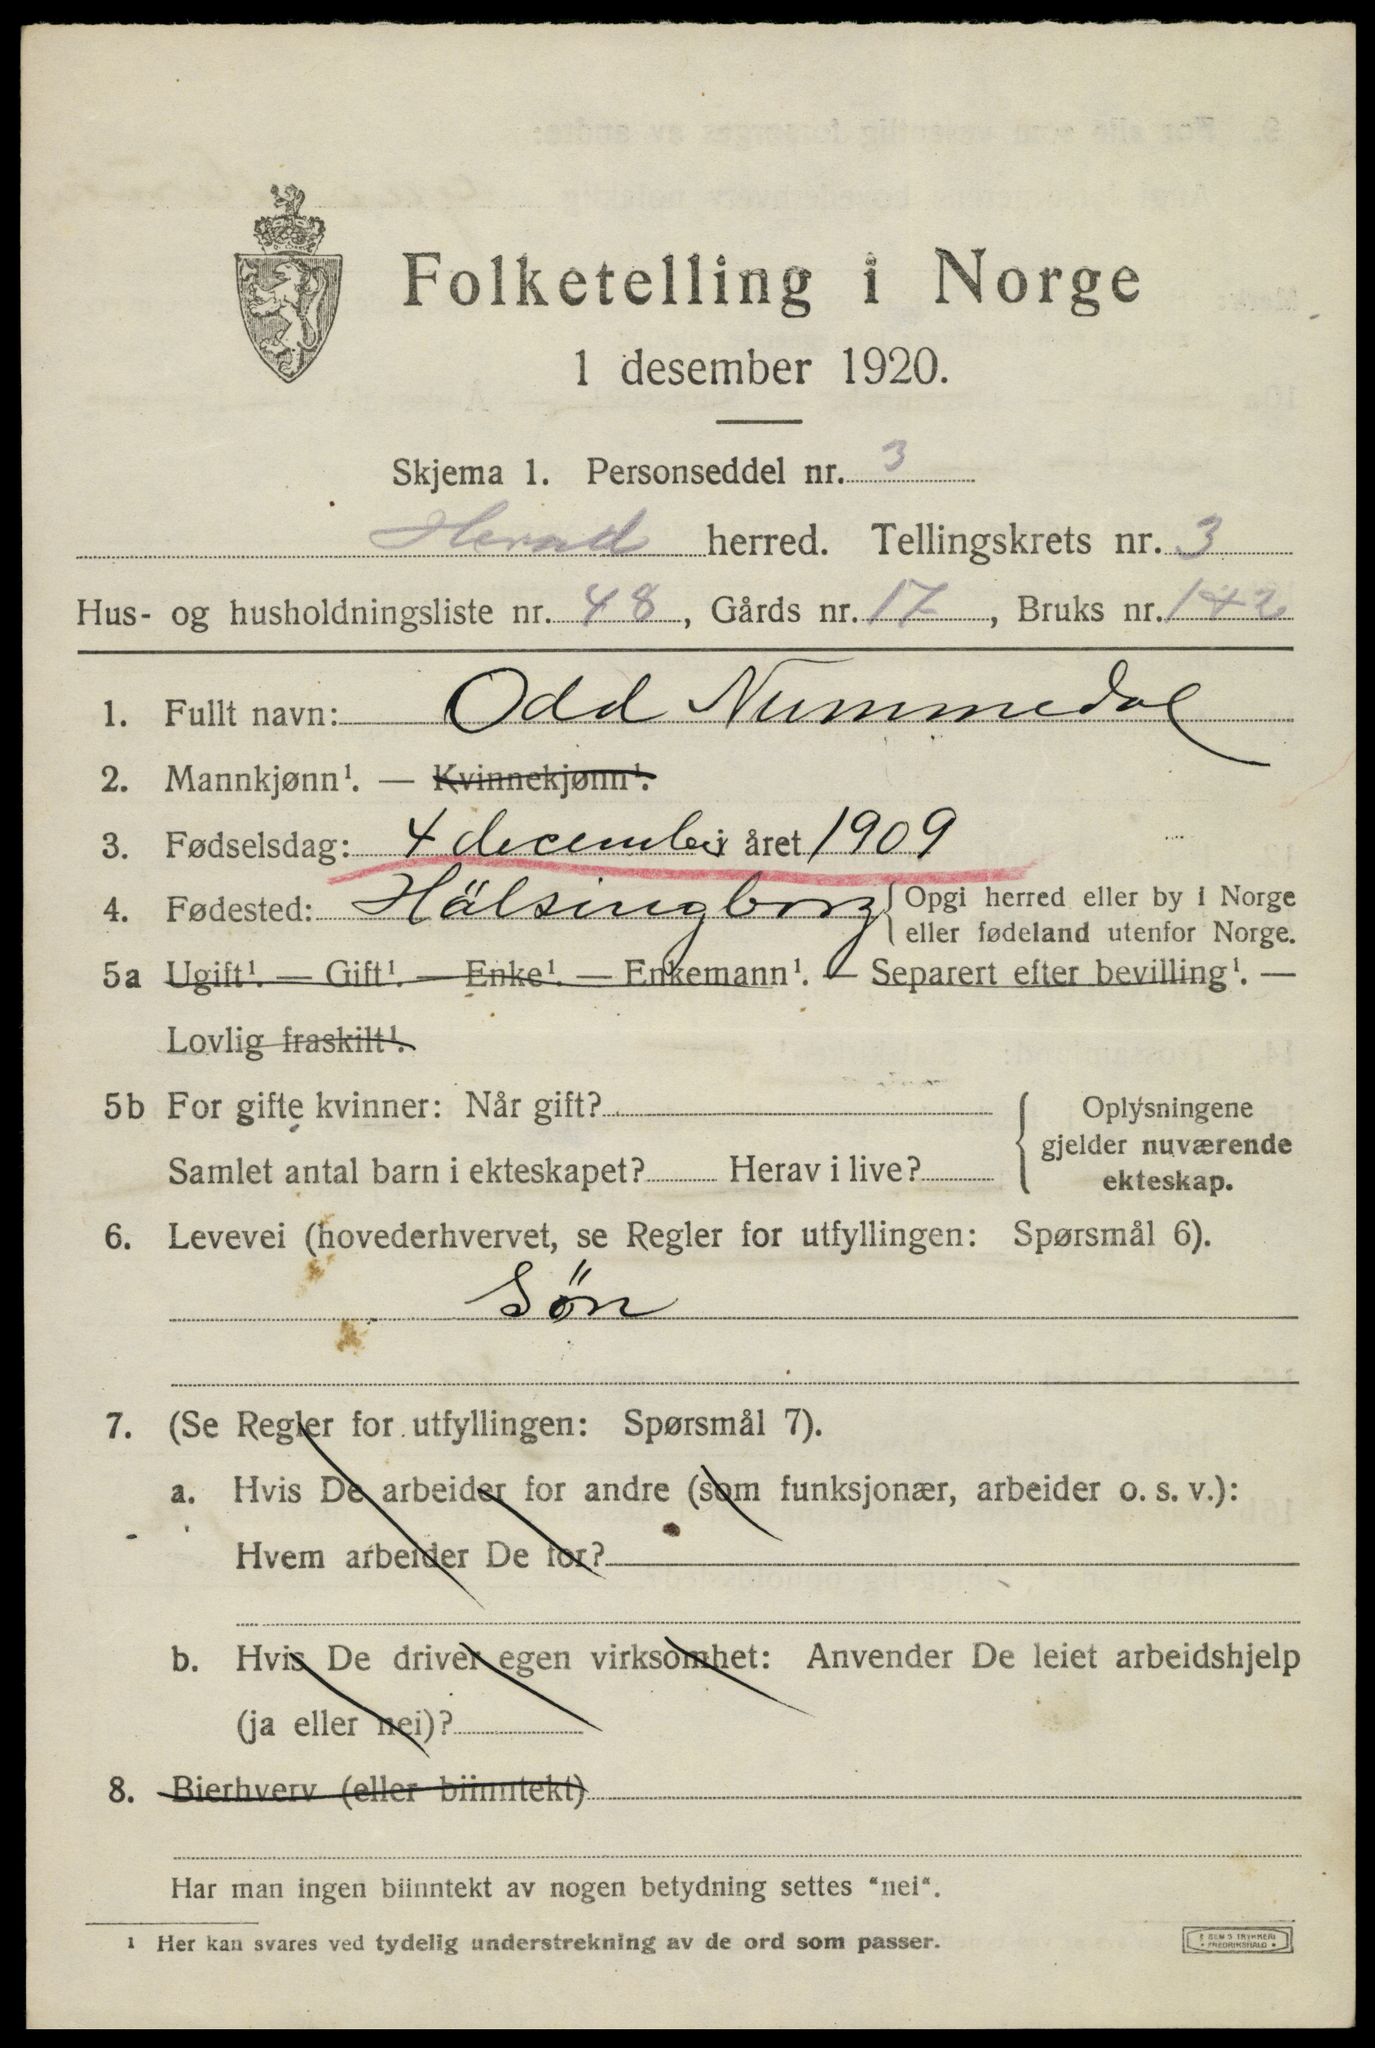 Folketelling i Norge
1 desember 1920.
Skjema 1. Personseddel nr. 3
Herad herred. Tellingskrets nr. 3
Hus- og husholdningsliste nr. 48, Gårds nr. 17, Bruks nr. 142
1. Fullt navn: Odd Nummedal
2. Mannkjønn¹. — Kvinnekjønn¹.
3. Fødselsdag: 4 december i året 1909
4. Fødested: Hälsingborg { Opgi herred eller by i Norge
eller fødeland utenfor Norge.
5a Ugift¹. — Gift¹. — Enke¹. — Enkemann¹. — Separert efter bevilling¹. —
Lovlig fraskilt¹.
5b For gifte kvinner: Når gift?
Samlet antal barn i ekteskapet? Herav i live?
Oplysningene
gjelder nuværende
ekteskap.
6. Levevei (hovederhvervet, se Regler for utfyllingen: Spørsmål 6).
Sön
7. (Se Regler for utfyllingen: Spørsmål 7).
a. Hvis De arbeider for andre (som funksjonær, arbeider o. s. v.):
Hvem arbeider De for?
b. Hvis De driver egen virksomhet: Anvender De leiet arbeidshjelp
(ja eller nei)?
8. Bierhverv (eller biinntekt)
Har man ingen biinntekt av nogen betydning settes "nei".
¹ Her kan svares ved tydelig understrekning av de ord som passer.
TRYKKERI
FREDRIKSHALD